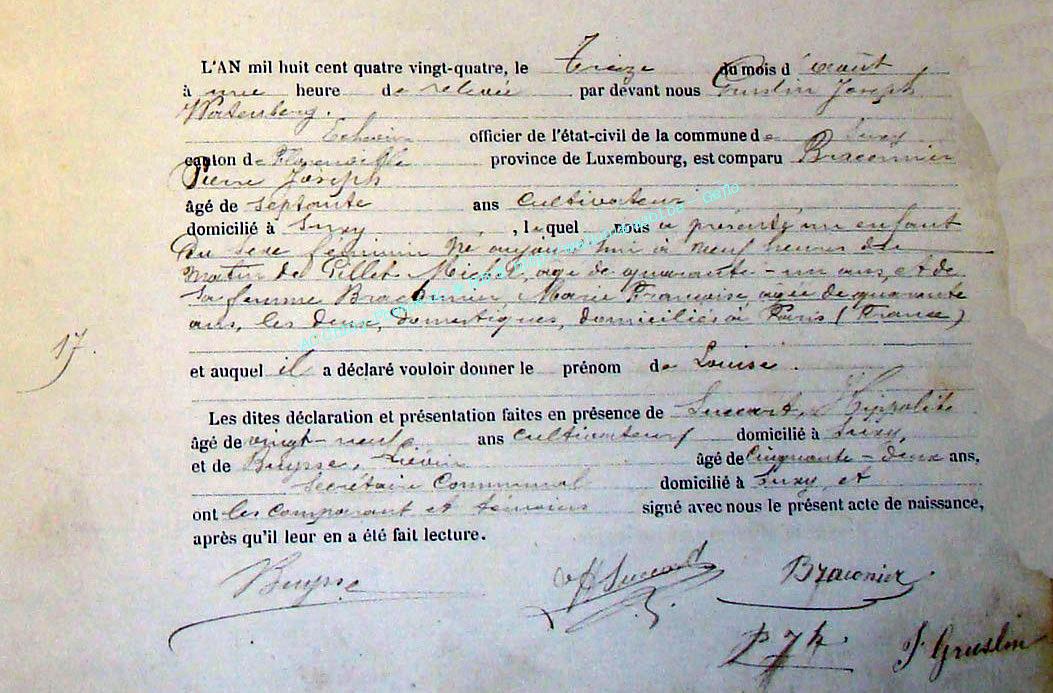 L'AN mil huit cent quatre vingt-quatre, le treize du mois d'août
à une heure de relevée par devant nous Gruslin Joseph
Watenberg.
Echevin officier de l'état-civil de la commune de Suxy
canton de Florenville province de Luxembourg, est comparu Braconnier
Pierre Joseph
âgé de septante ans cultivateur
domicilié à Suxy, lequel nous a présenté un enfant
du sexe féminin né aujourd'hui à neuf heures du
matin de Pillet Michel, âgé de quarante-un ans, et de
sa femme Braconnier, Marie Françoise, agée de quarante
ans, les deux, domestiques, domiciliés à Paris (France)
17.
et auquel il a déclaré vouloir donner le prénom de Louise.
Les dites déclaration et présentation faites en présence de Hippolite
âgé de vingt-neuf ans cultivateur domicilié à Suxy,
et de Buysse, Liévin âgé de Cinquante-deux ans,
Secrétaire Communal domicilié à Suxy, et
ont les comparant et témoins signé avec nous le présent acte de naissance,
après qu'il leur en a été fait lecture.
Buysse Braconier
J Gruslin